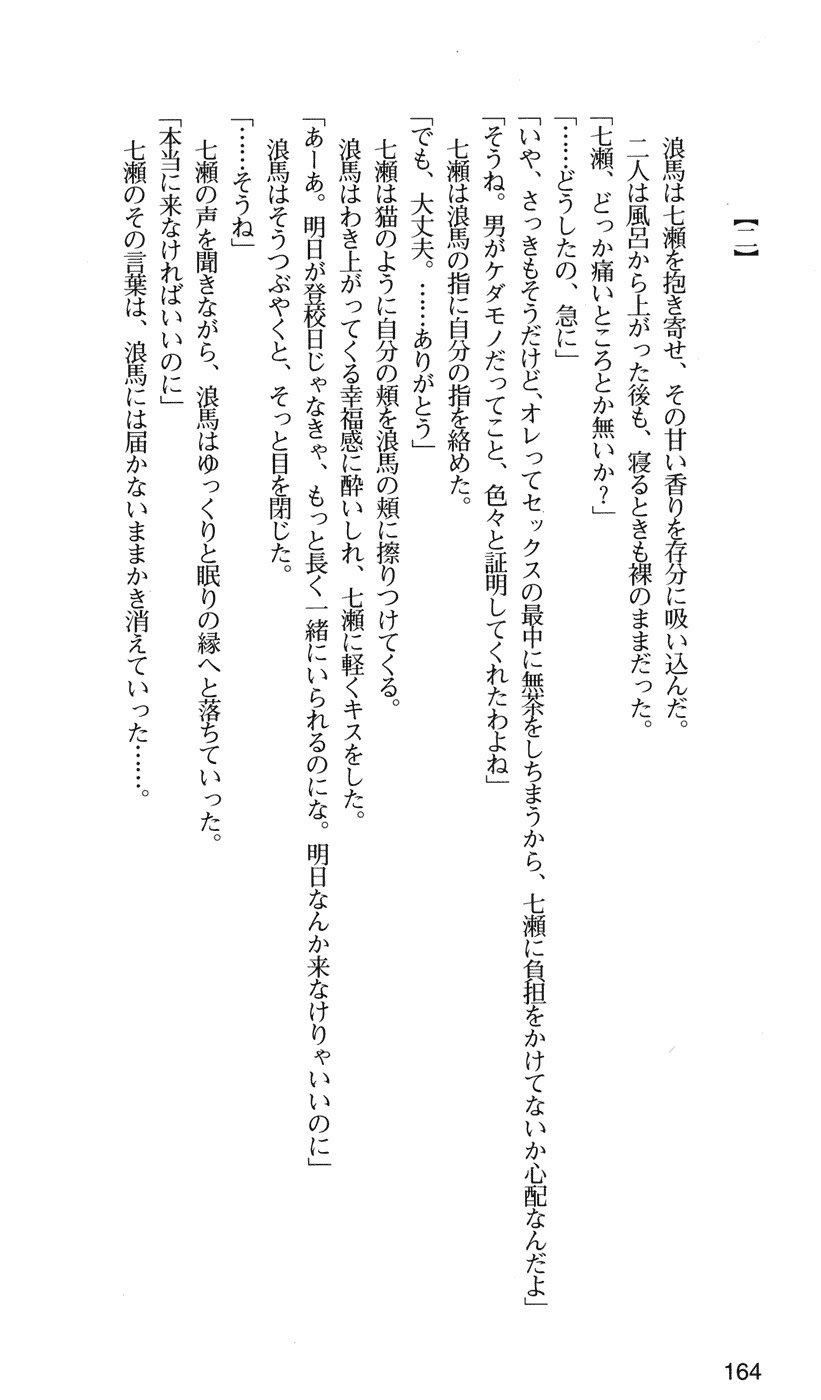 【二】
浪馬は七瀬を抱き寄せ、その甘い香りを存分に吸い込んだ。
二人は風呂から上がった後も、寝るときも裸のままだった。
「七瀬、どっか痛いところとか無いか?」
「……どうしたの、急に」
「いや、さっきもそうだけど、オレってセックスの最中に無茶をしちまうから、七瀬に負担をかけてないか心配なんだよ」
「そうね。男がケダモノだってこと、色々と証明してくれたわよね」
七瀬は浪馬の指に自分の指を絡めた。
「でも、大丈夫。……ありがとう」
七瀬は猫のように自分の頬を浪馬の頬に擦りつけてくる。
浪馬はわき上がってくる幸福感に酔いしれ、七瀬に軽くキスをした。
「あーあ。明日が登校日じゃなきゃ、もっと長く一緒にいられるのにな。明日なんか来なけりゃいいのに」
浪馬はそうつぶやくと、そっと目を閉じた。
「……そうね」
七瀬の声を聞きながら、浪馬はゆっくりと眠りの縁へと落ちていった。
「本当に来なければいいのに」
七瀬のその言葉は、浪馬には届かないままかき消えていった……。
164